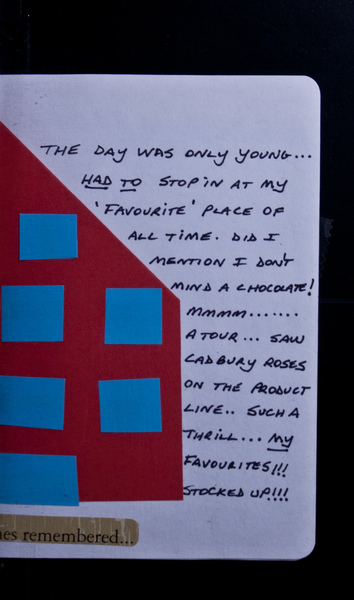 THE DAY WAS ONLY YOUNG...
HAD TO STOP IN AT MY
'FAVOURITE' PLACE OF
ALL TIME. DID I
MENTION I DON'T
MIND A CHOCOLATE!
MMMM.......
A TOUR... SAW
CADBURY ROSES
ON THE PRODUCT
LINE.. SUCH A
THRILL... MY
FAVOURITES!!!
STOCKED UP!!!!
remembered...